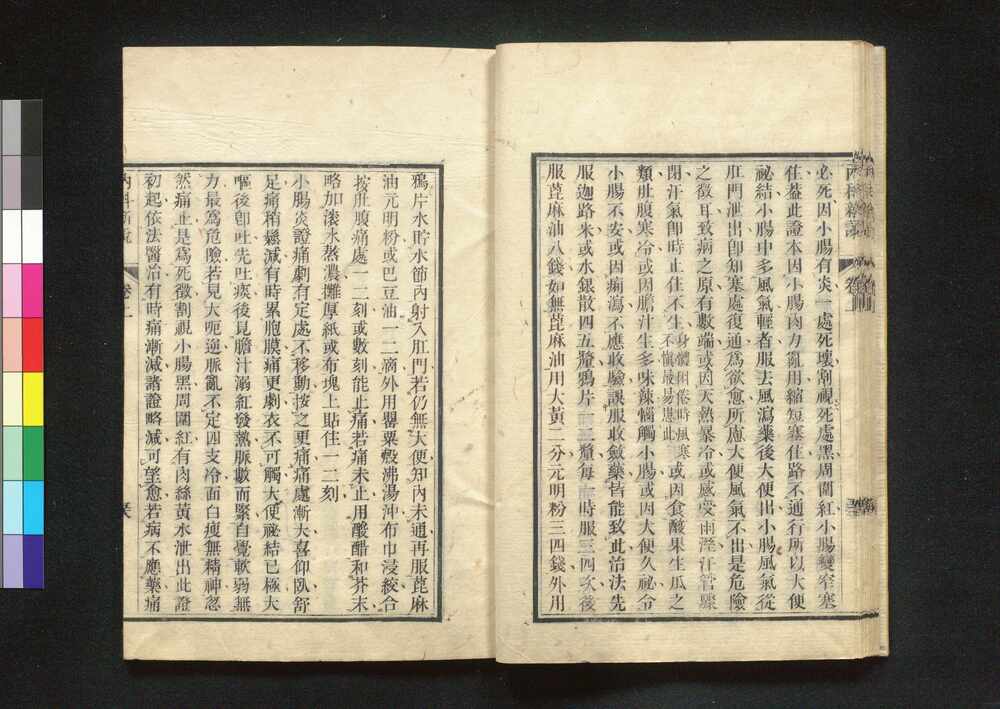 必死因小腸有炎一處死壞割視死處黑周圍紅小腸變窄塞
住蓋此證本因小腸肉力亂用縮短塞住路不通行所以大便
祕結小腸中多風氣輕者服去風瀉藥後大便出小腸風氣從
肛門泄出卽知塞處復通爲欲愈所慮大便風氣不出是危險
之徵耳致病之原有數端或因天熱暴冷或感受雨溼汗管驟
閉汗氣卽時止住不生身體倦時風寒不慎最易患此或因食酸果生瓜之
類肚腹寒冷或因膽汁生多味辣惱觸小腸或因大便久祕令
小腸不安或因痢瀉不應收驗誤服收斂藥皆能致此治法先
服迦路米或水銀散四五釐鴉片一二釐每一時服三四次後
服萞麻油八錢如無萞麻油用大黃二分元明粉三四錢外用
鴉片水貯水節內射入肛門若仍無大便知內未通再服萞麻
油元明粉或巴豆油一二滴外用罌粟殼沸湯沖布巾浸絞合
按肚腹痛處一二刻或數刻能止痛若痛未止用酸醋和芥末
略加滾水蒸濃攤厚紙或布塊上貼住一二刻
小腸炎證痛劇有定處不移動按之更痛痛處漸大喜仰臥舒
足痛稍鬆減有時累胞膜痛更劇衣不可觸大便祕結已極大
嘔後卽吐先吐痰後見膽汁溺紅發熱脈數而緊自覺軟弱無
力最爲危險若見大呃逆脈亂不定四支冷面白瘦無精神忽
然痛止是爲死徵割視小腸黑周圍紅有肉絲黃水泄出此證
初起依法醫治有時痛漸減諸證略減可望愈若病不應藥痛
內科新說
卷上